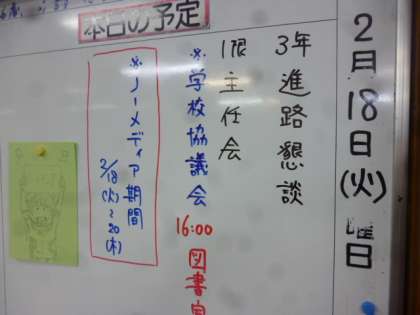 本日の予定
2月18日(火)曜日
3年進路懇談
1限主任会
※学校協議会 16:00 図書室
※ノーメディア期間
2/18(火)~20(木)